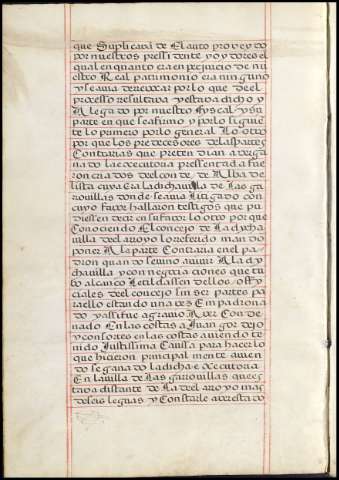 que Suplicava de El auto proveydo
por nuestros pressidente y oydores el
qual en quanto era en perjuicio de nu
estro Real patrimonio era ninguno
y se avia de revocar por lo que de el
processo resultava y estava dicho y
Alegado por nuestro fyscal y su
parte en que se afirmo y por lo siguiē
te lo primero por lo general Lo otro
por que los predecesores de las partes
Contrarias que pretendian aver gana
do la executoria pressentada fue
ron criados del conde de Alba de
lista cuya era la dicha villa de Las ga
rrovillas donde se avia Litigado con
cuyo favor hallaron testigos que pu
diessen decir en su favor lo otro por que
Conociendo El concejo de La dycha
villa del arroyo lo referido mando
poner A la parte Contraria en el pa
dron quando se vino a vivir A la dy
cha villa y con negociaciones que tu
bo alcanço Le tildassen de llos offy
ciales del concejo sin ser partes pa
ra ello estando una vez Empadrona
do y assi fue agravio Aver Con de
nado En las costas a Juan gor dejo
y consortes en las costas aviendo te
nido Justissima Caussa para hacer lo
que hicieron principal mente avien
do se ganado la dicha executoria
En la villa de Las garrovillas que es
tava distante de La del arroyo mas
de seis leguas y Constar le acresta do